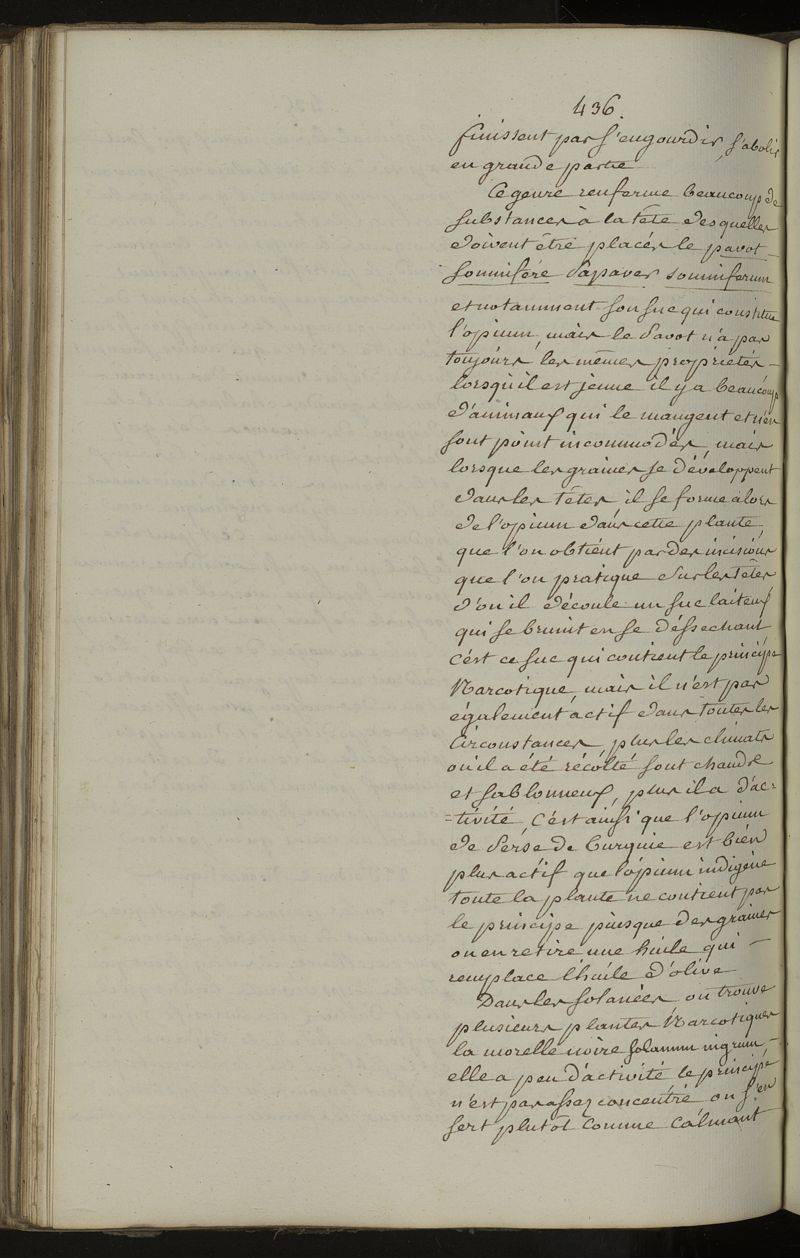 436.
finissent par s'engourdir, s'abolir
en grande partie
Ce genre renferme beaucoup de
substances à la tête desquelles
doivent être placés le pavot
somnifére Papaver somniferum
et notamment son suc qui constitue
l'opium, mais le Pavot n'a pas
toujours les mêmes proprietés —
lorsqu'il est jeune il y a beaucoup
d'animaux qui le mangent et n'en
sont point incommodés, mais
lorsque les graines se développent
dans les têtes, il se forme alors
de l'opium dans cette plante,
que l'on obtient par des incisions
que l'on pratique sur les têtes
d'où il découle un suc laiteux
qui se brunit en se déssechant
c'est ce suc qui contient le principe
Narcotique, mais il n'est pas
également actif dans toutes les
Circonstances, plus les climats
où il a été récolté sont chauds
et sablonneux, plus il a d'ac-
=tivité, c'est ainsi que l'opium
de Perse de Turquie est bien
plus actif que l'opium indigéne
toute la plante ne contient pas
le principe puisque des graines
on en retire une huile qui —
remplace l'huile d'olive
Dans les solanées, on trouve
plusieurs plantes Narcotiques
la morelle noire solanum nigrum, —
elle a peu d'activité le principe
n'est pas assez concentré on s'en
sert plutôt comme calmant